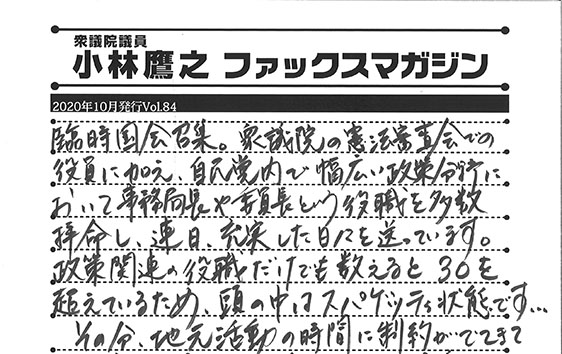 衆議院議員
小林鷹之 ファックスマガジン
2020年10月発行Vol.84
臨時国会召集。衆議院の憲法審査会での
役員に加え、自民党内で幅広い政策分野に
おいて事務局長や委員長という役職を多数
拝命し、連日、充実した日々を送っています。
政策関連の役職だけでも数えると30を
超えているため、頭の中はスパゲッティ状態です…
その分、地元活動の時間に制約がでてきて